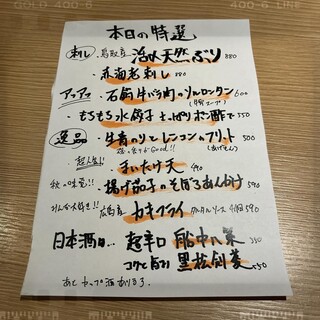 GOLD 400-6
400-6 LIKE
本日の特選
刺し 鳥取産 活〆天然ぶり 880
・赤海老刺し 880
アツアツ・石餅牛バラ肉のソルロンタン 600
・もちもち水餃子 さっぱりポン酢で 550
逸品・生青のりとレンコンのフリット 500
超人気!! ・まいたけ天 490
秋の味覚!! ・揚げ茄子のそぼろあんかけ 590
みんな大好き!! 広島産 カキフライ タルタルソース 4個 590
日本酒 超辛口 船中八策
コクと旨み 黒松剣菱 550
あと、カップ酒あります。